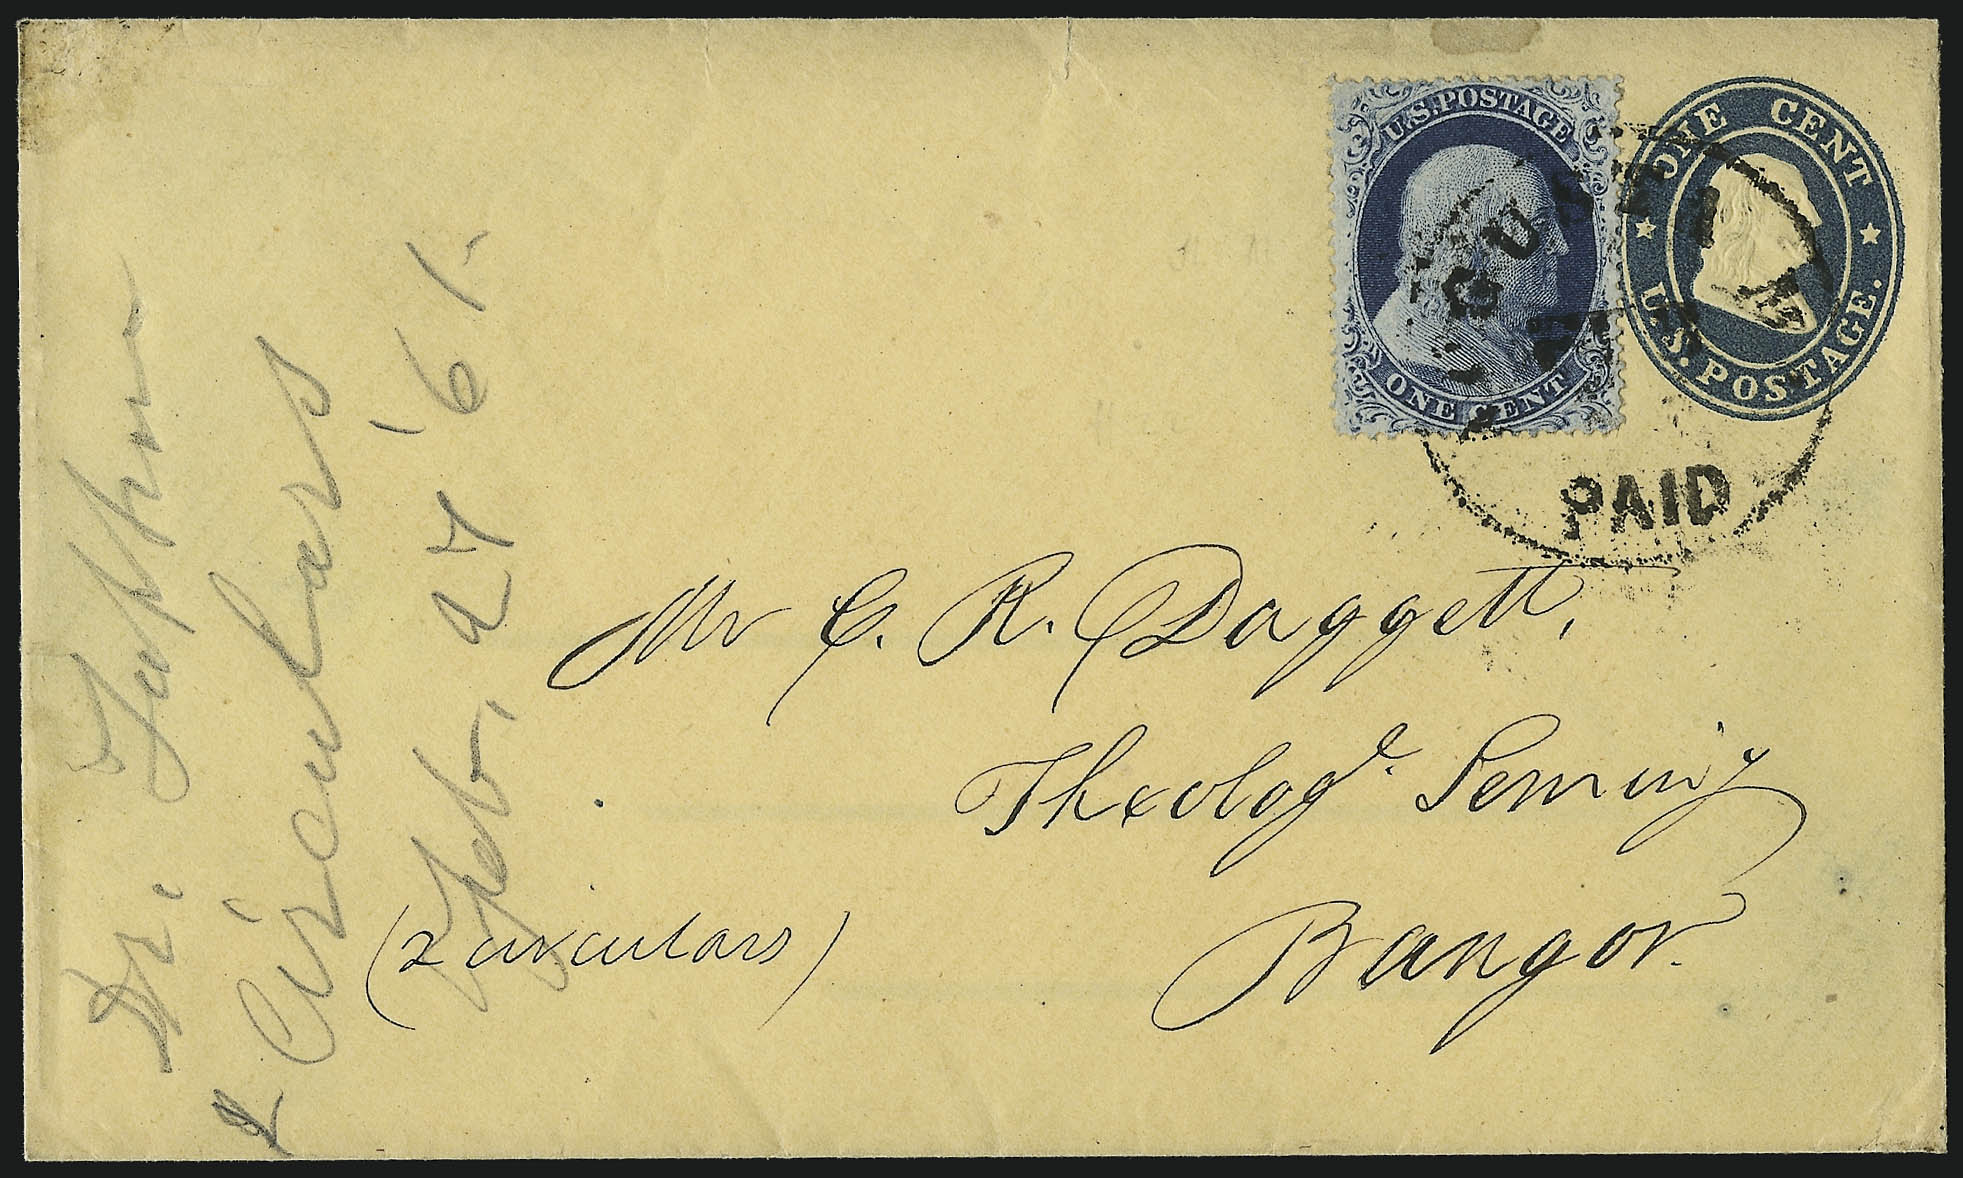 U.S. POSTAGE
ONE CENT
ONE CENT
U.S. POSTAGE.
PAID
Mr C. R. Daggett,
Theologl. Seminy
Bangor.
(2 circulars)
Dr.
2 Circulars
Feb. 27 '61.